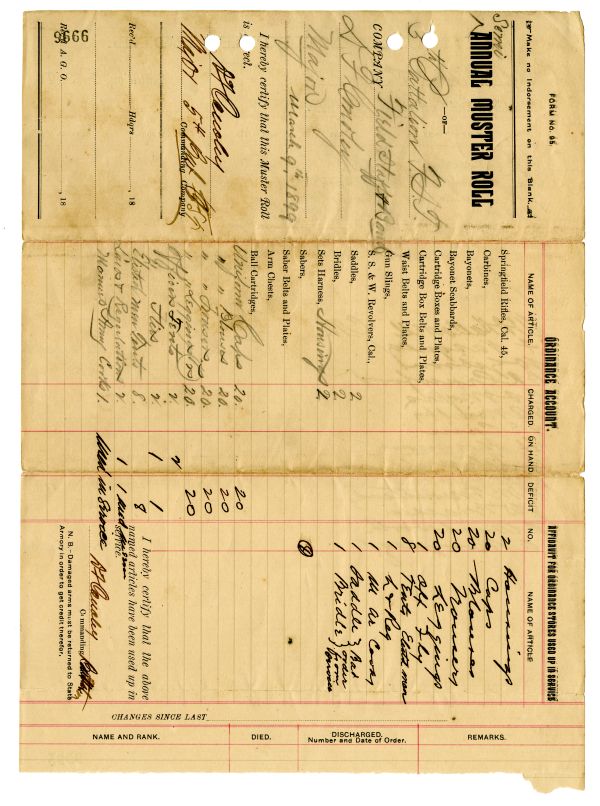 FORM No. 65.
Make no Indorsement on this Blank.
Semi
ANNUAL MUSTER ROLL
—OF—
5th Battalion
COMPANY Field Staff & Band
Major
March 9th 1899
I hereby certify that this Muster Roll
is correct.
Major 5th
Commanding Company
Rec'd Hdqrs , 18
Rec'd A. G. O. , 18
9566
ORDNANCE ACCOUNT.
NAME OF ARTICLE. CHARGED. ON HAND DEFICIT
Springfield Rifles, Cal. 45,
Carbines,
Bayonets,
Bayonet Scabbards,
Cartridge Boxes and Plates,
Cartridge Box Belts and Plates,
Waist Belts and Plates,
Gun Slings,
S. & W. Revolvers, Cal.,
Saddles, 2
Bridles, 2
Sets Harness, Housings 2
Sabers,
Saber Belts and Plates,
Arm Chests,
Ball Cartridges,
Uniform Caps 20. 20
" Blouses 20. 20
" Trousers 20. 20
" Leggings 20. 20
Tents 2. 2
Flies 2. 1 1
Eleven Man Tents 8. 8
Laws & Regulations 2. 1 1
Army Cooks 1. 1
Used in Service
AFFIDAVIT FOR ORDNANCE STORES USED UP IN SERVICE
NO. NAME OF ARTICLE
2 Housings
20 Caps
20 Blouses
20 Trousers
20 Leggings
1 Fly
8 Tents
1 L & Reg
1
1 Saddle } Bad order
1 Bridle }
I hereby certify that the above
named articles have been used up in
service.
Commanding
N. B.—Damaged arms must be returned to State
Armory in order to get credit therefor.
CHANGES SINCE LAST
NAME AND RANK. DIED. DISCHARGED. Number and Date of Order. REMARKS.